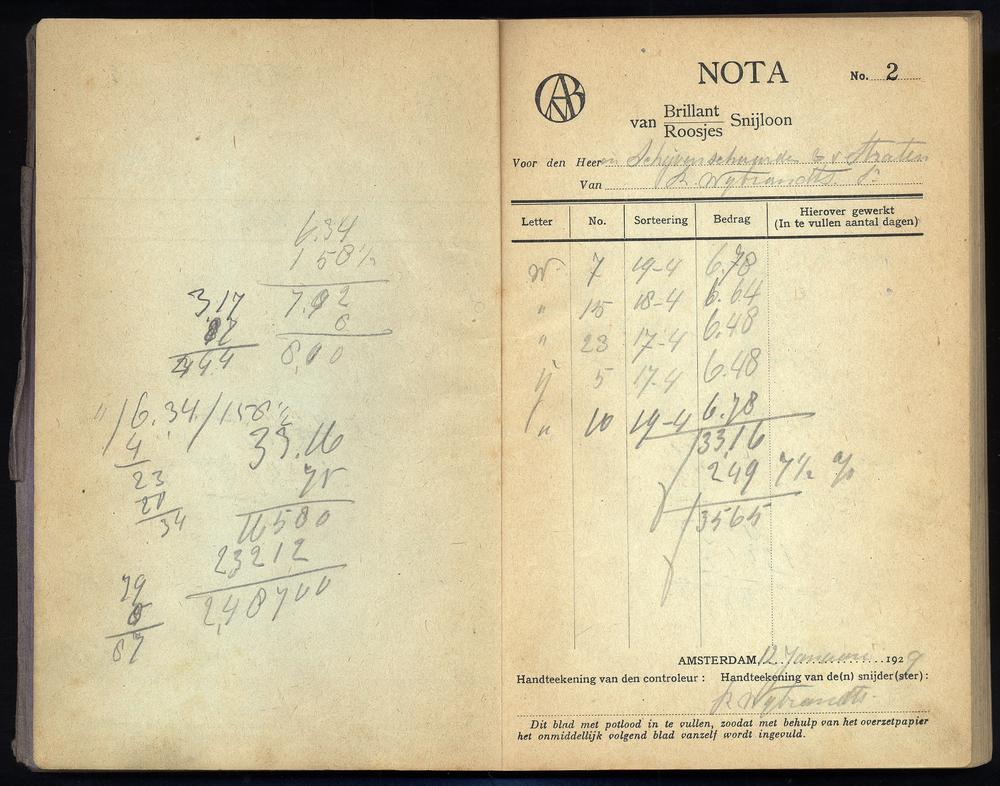 6.34
1 58½
7.92
3.17
8
87
8,00
444
" /6.34/158½
4
33.16
23
75
20
34
16580
23212
248700
79
8
87
NOTA
No. 2
van Brillant Roosjes Snijloon
Voor den Heeren Schijvenschuurder & v Straten
Van R. Wybrandts. Sr
Letter No. Sorteering Bedrag Hierover gewerkt (In te vullen aantal dagen)
W 7 19-4 6.78
" 15 18-4 6.64
" 23 17-4 6.48
IJ 5 17-4 6.48
" 10 19-4 6.78
3316
249 7½ %
3565
AMSTERDAM, 12 Januari 1929
Handteekening van den controleur : Handteekening van de(n) snijder(ster) :
R Wybrandts.
Dit blad met potlood in te vullen, zoodat met behulp van het overzetpapier
het onmiddellijk volgend blad vanzelf wordt ingevuld.